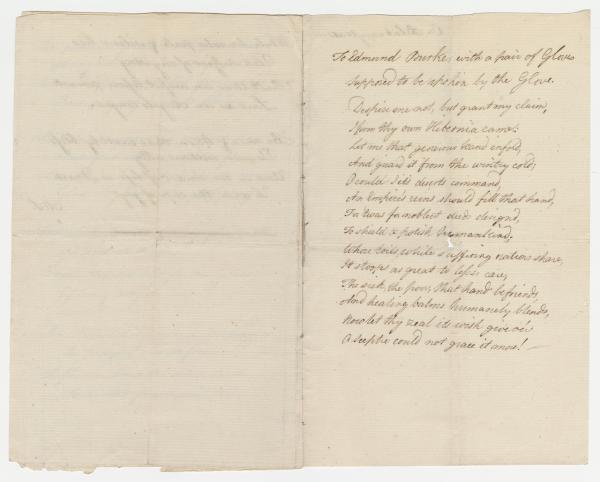 To Edmund Bourke, with a pair of Gloves
supposed to be spoken by the Glove.
Despise me not, but grant my claim,
From thy own Hibernia came:
Let me that generous hand enfold,
And guard it from the wintry cold;
O could I it's deserts command,
An Empire's reins should fill that hand,
For 'twas for noblest deeds design'd,
To shield & polish humankind;
Whose toils, while suffering nations share,
It stoops as great to less care,
The sick, the poor, that hand befriends,
And healing balms humanely blends,
Now let thy zeal its wish give o'er
A sceptre could not grace it more! —